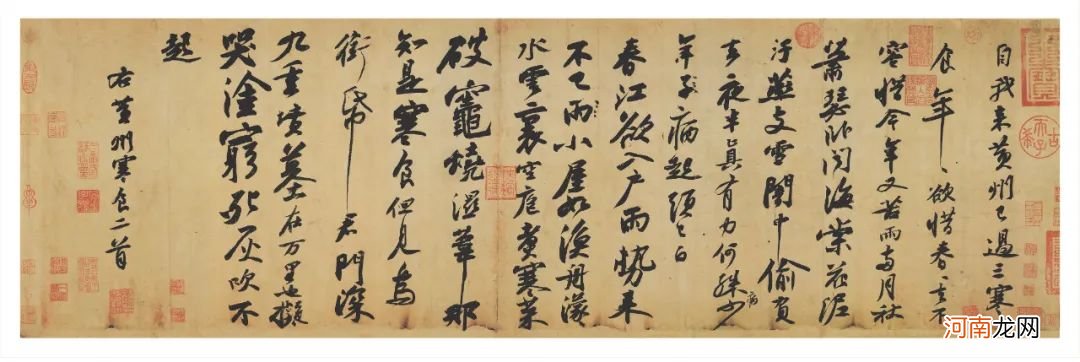 自我来黄州已過三寒
食年〻欲惜春去不
容惜今年又苦雨兩月秋
蕭瑟卧聞海棠花泥
汙燕支雪闇中偷負
去夜半真有力何殊病少
年子病起頭已白
春江欲入户雨勢来
不已雨小屋如漁舟濛〻
水雲裏空庖煮寒菜
破竈燒濕葦那
知是寒食但見烏
銜帋君門深
九重墳墓在万里也擬
哭塗窮死灰吹不
起
右黄州寒食二首
河南龙网